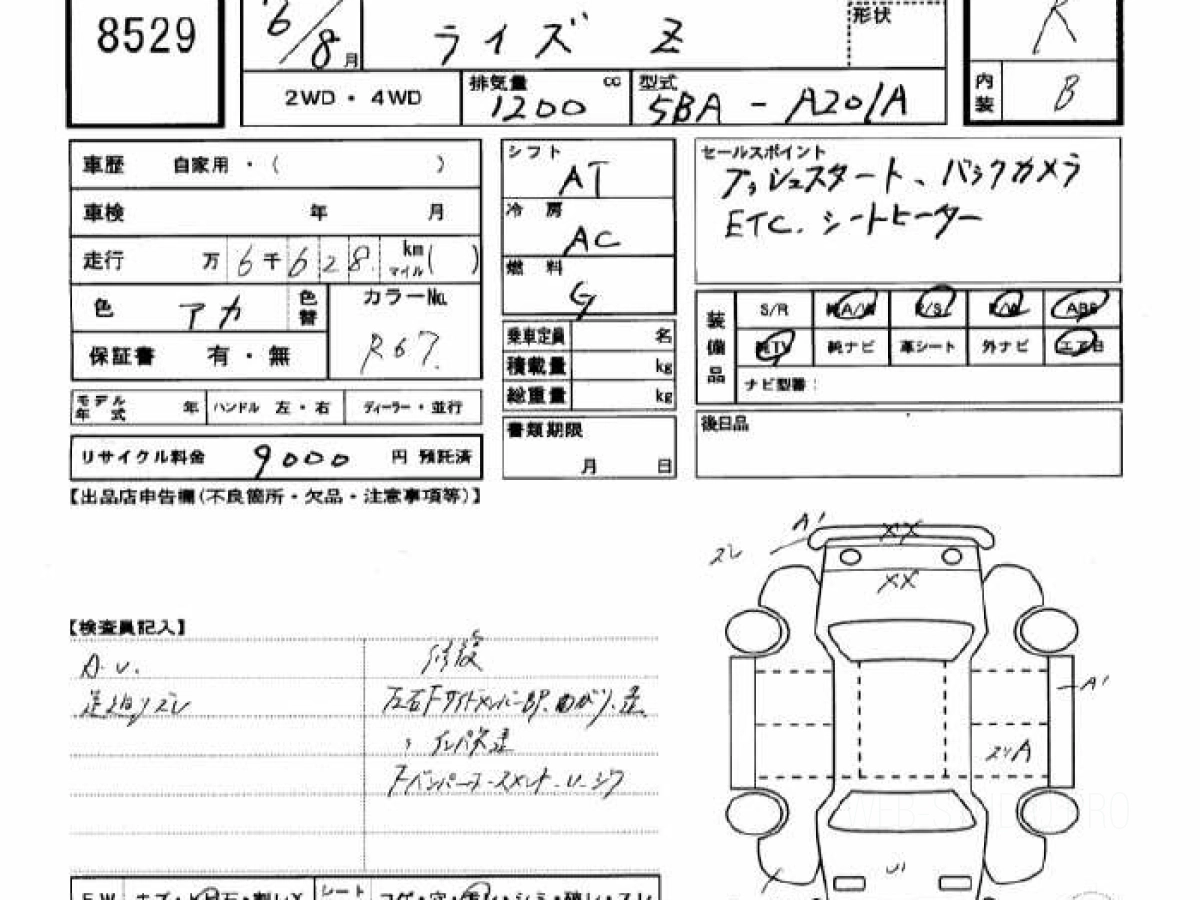 8529
6/8月
ライズ Z
形状
R
2WD・4WD
排気量 1200 cc
型式 5BA-A201A
内装 B
車歴 自家用・( )
車検 年 月
走行 万 6千628 km マイル( )
色 アカ
色替
カラーNo. R67
保証書 有・無
モデル年式 年
ハンドル 左・右
ディーラー・並行
リサイクル料金 9000 円 預託済
シフト AT
冷房 AC
燃料 G
乗車定員 名
積載量 kg
総重量 kg
書類期限 月 日
セールスポイント
プッシュスタート、バックカメラ
ETC. シートヒーター
装備品
S/R 純A/W P/S P/W ABS
純TV 純ナビ 革シート 外ナビ エアB
ナビ型番:
後日品
【出品店申告欄(不良箇所・欠品・注意事項等)】
【検査員記入】
A.U.
足廻りズレ
修復
左右Fサイドメンバー
曲がり、歪
インパネ歪
A'
ズレ
XX
XX
A'
スリA
U1
F.W
シート コゲ・穴・汚レ・シミ・破レ・スレ